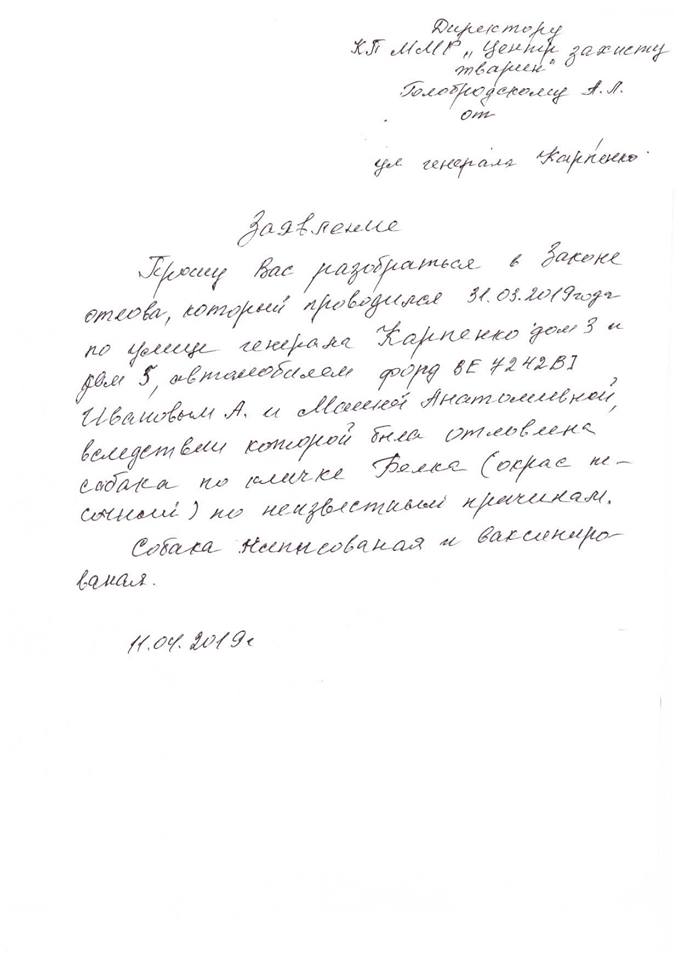 Директору
КП ММР „Центр захисту
тварин"
Голобродскому А.Л.
от
ул генерала Карпенко
Заявление
Прошу Вас разобраться в Законе
отлова, который проводился 31.03.2019 года
по улице генерала Карпенко дом 3 и
дом 5, автомобилем форд ВЕ 7242ВІ
Ивановым А. и Анатолиевной,
вследствии которой была отловлена
собака по кличке Белка (окрас пе-
сочный) по неизвестным причинам.
Собака чипированая и вакциниро-
ваная.
11.04.2019г